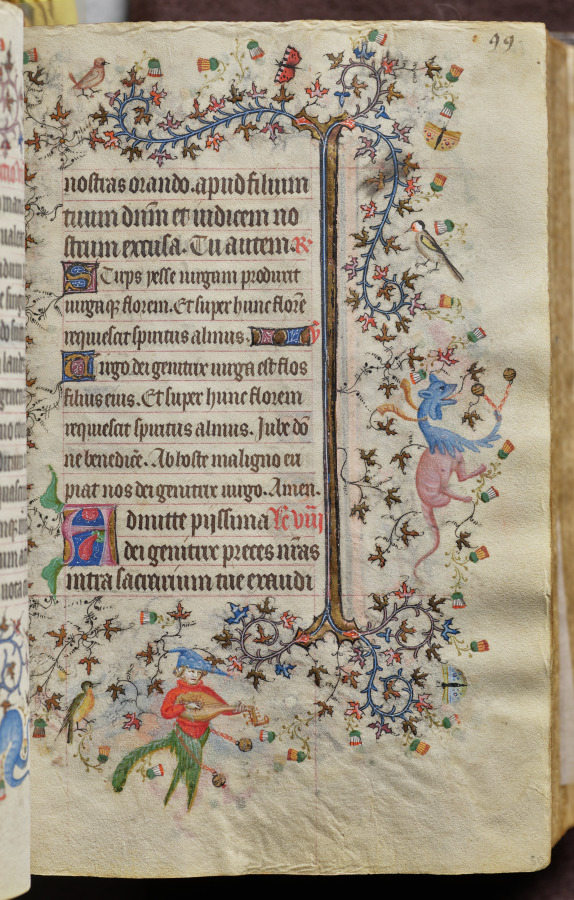 99
nostras orando. apud filium
tuum dn̄m et iudicem no
strum excusa. Tu autem. R̃.
Stirps yesse uirgam produxit
uirga qꝫ florem. Et super hunc florē
requiescit spiritus almus. ℣
Uirgo dei genitrix uirga est flos
filius eius. Et super hunc florem
requiescit spiritus almus. Jube dō
ne benedic̄e. Ab hoste maligno eri
piat nos dei genitrix uirgo. Amen.
Admitte pijssima Lc̄ viij
dei genitrix preces nr̄as
intra sacrarium tue exaudi